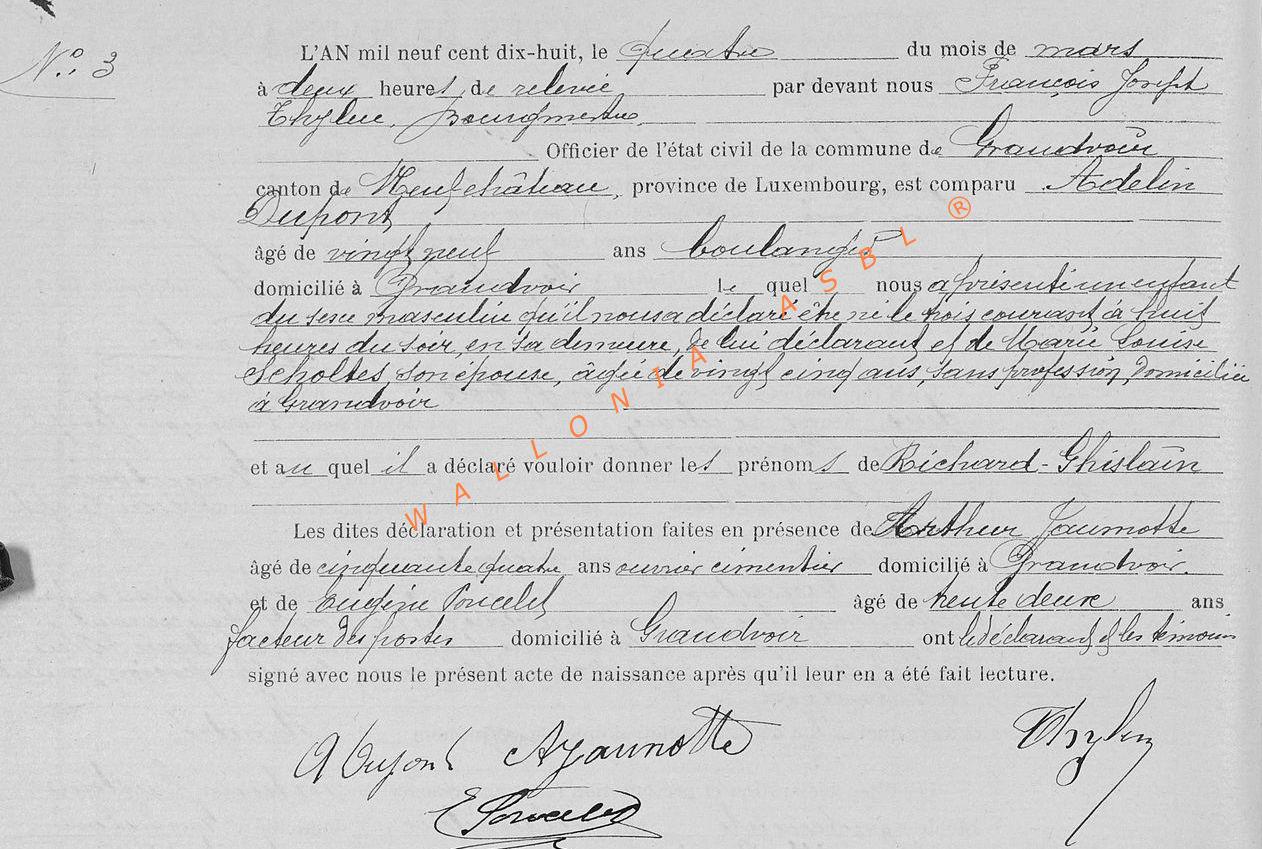 N° 3
L'AN mil neuf cent dix-huit, le quatre du mois de mars
à deux heures de relevée par devant nous François Joseph
Bourgmestre
Officier de l'état civil de la commune de Grandvoir
canton de Neufchâteau, province de Luxembourg, est comparu Adelin
Dupont
âgé de vingt neuf ans boulanger
domicilié à Grandvoir le quel nous a présenté un enfant
du sexe masculin qu'il nous a déclaré être né le trois courant à huit
heures du soir, en sa demeure, de lui déclarant et de Marie Louise
Scholtes, son épouse, âgée de vingt cinq ans, sans profession, domiciliée
à Grandvoir
et au quel il a déclaré vouloir donner les prénoms de Richard-Ghislain
Les dites déclaration et présentation faites en présence de Arthur Jaumotte
âgé de cinquante quatre ans ouvrier cimentier domicilié à Grandvoir
et de Eugène Poncelet âgé de trente deux ans
facteur des postes domicilié à Grandvoir ont le déclarant et les témoins
signé avec nous le présent acte de naissance après qu'il leur en a été fait lecture.
A Dupont A Jaumotte
E Poncelet
WALLONIA ASBL ®